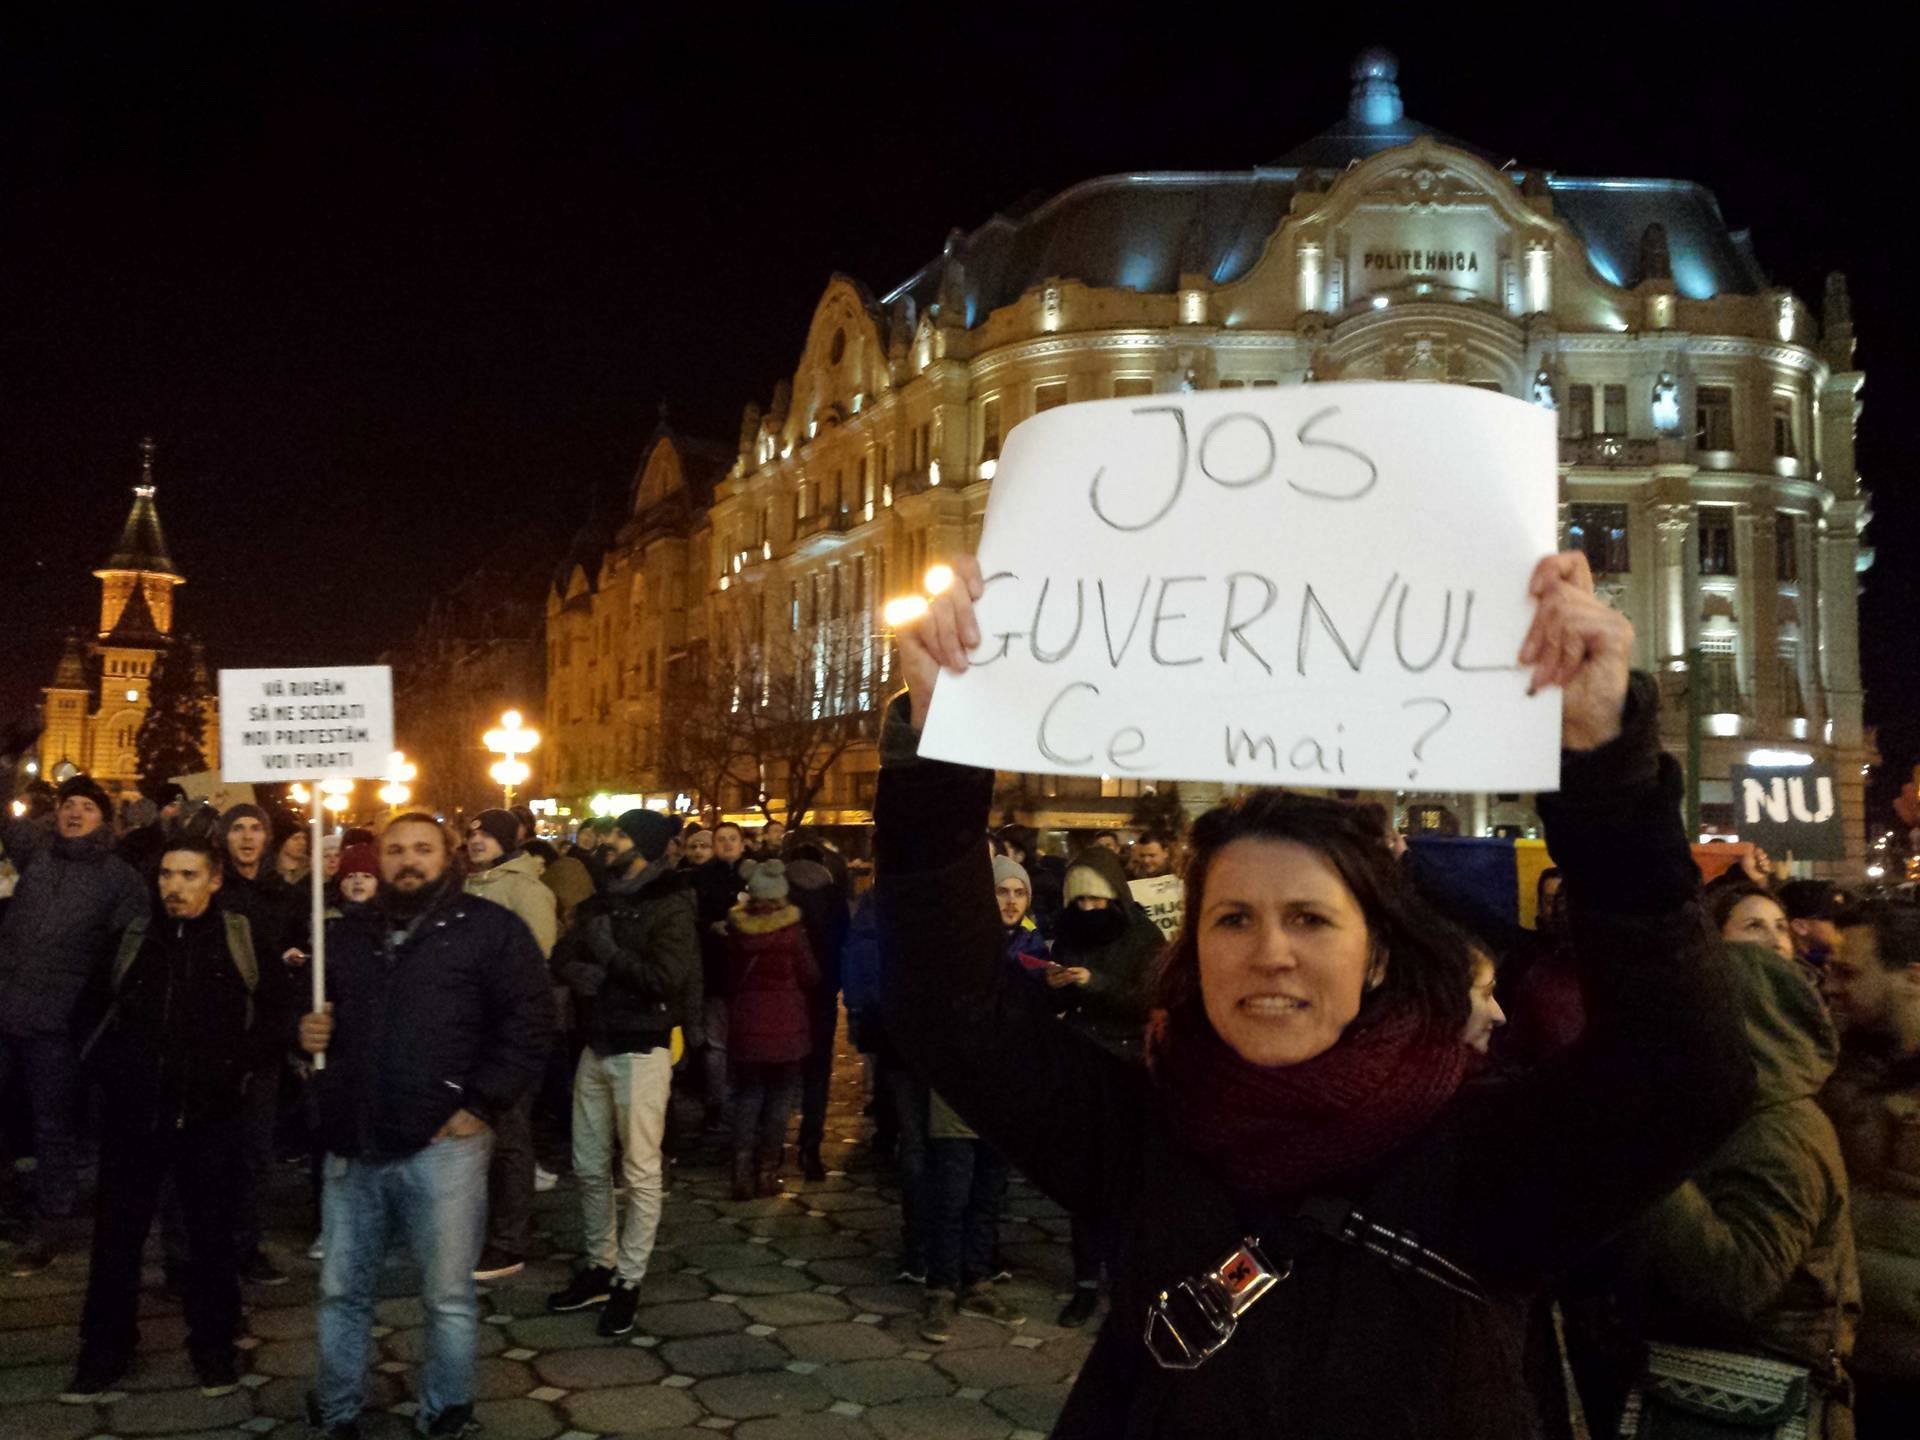 POLITEHNICA
JOS
GUVERNUL
Ce mai ?
VĂ RUGĂM
SĂ NE SCUZAȚI
NOI PROTESTĂM,
VOI FURAȚI
NU